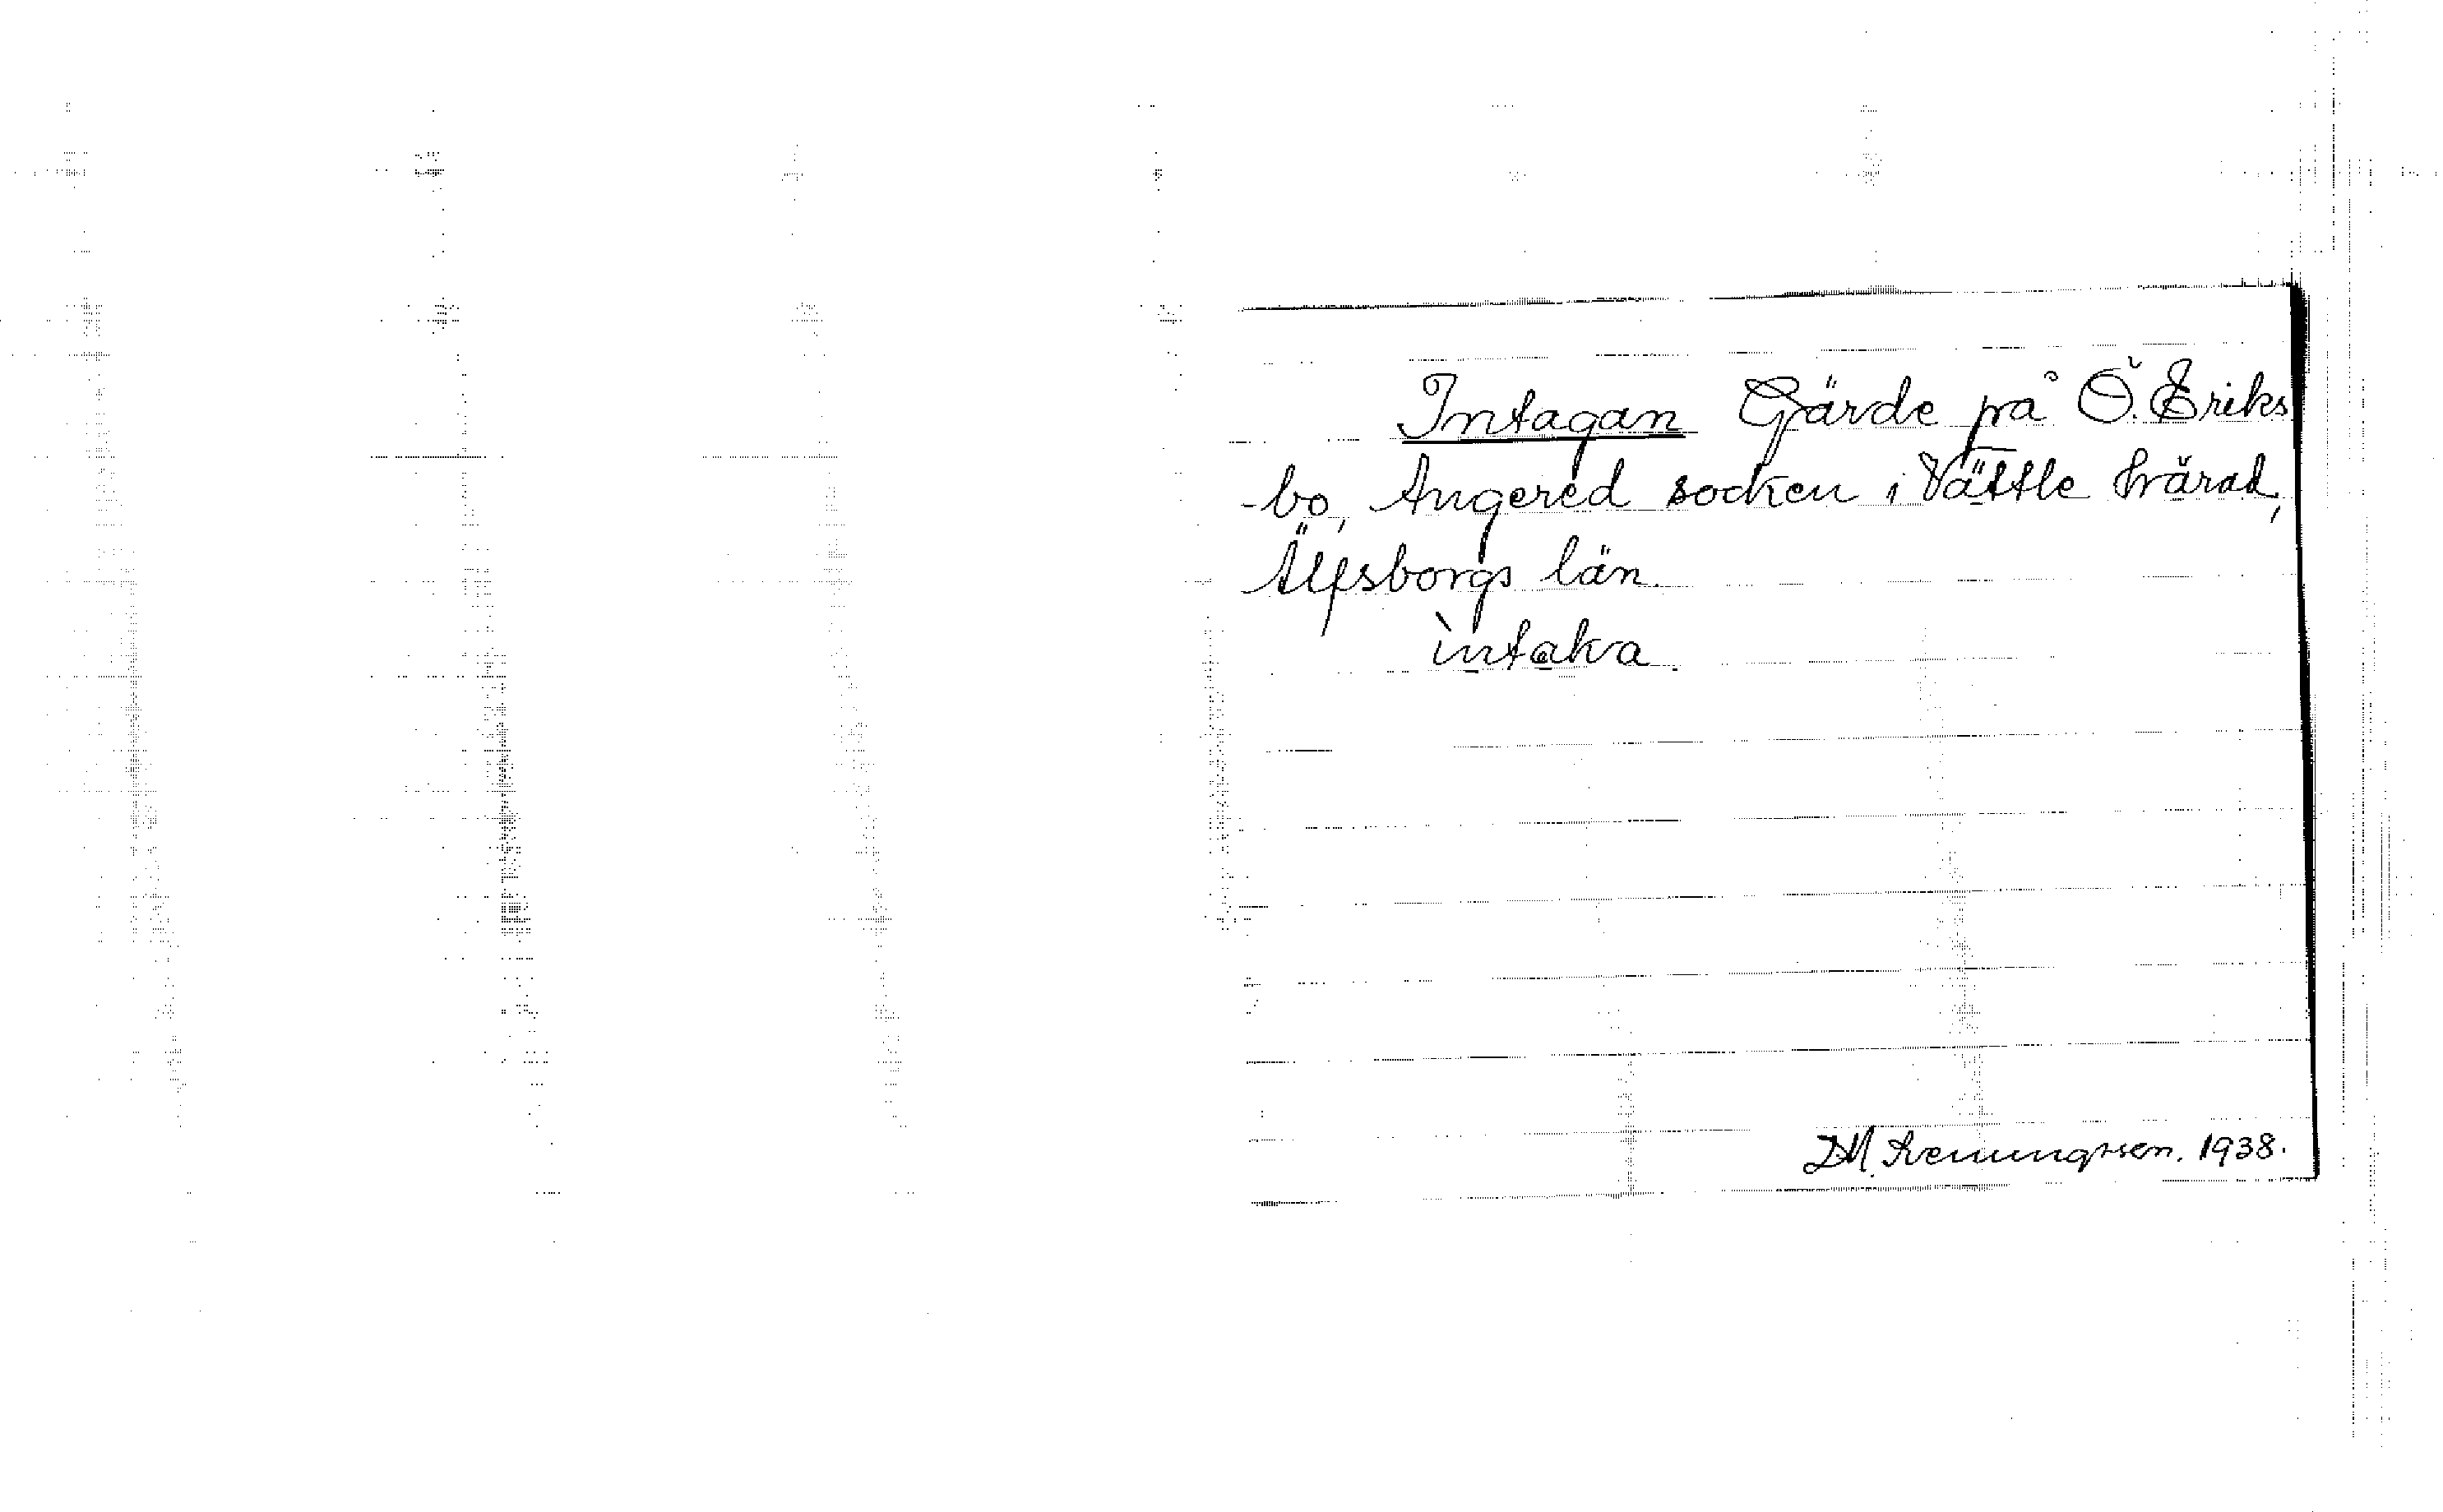 Intagan Gärde på Ö. Eriks
-bo, Angered socken i Vättle härad,
Älfsborgs län.
intaka.
D.M. Henningsson. 1938.